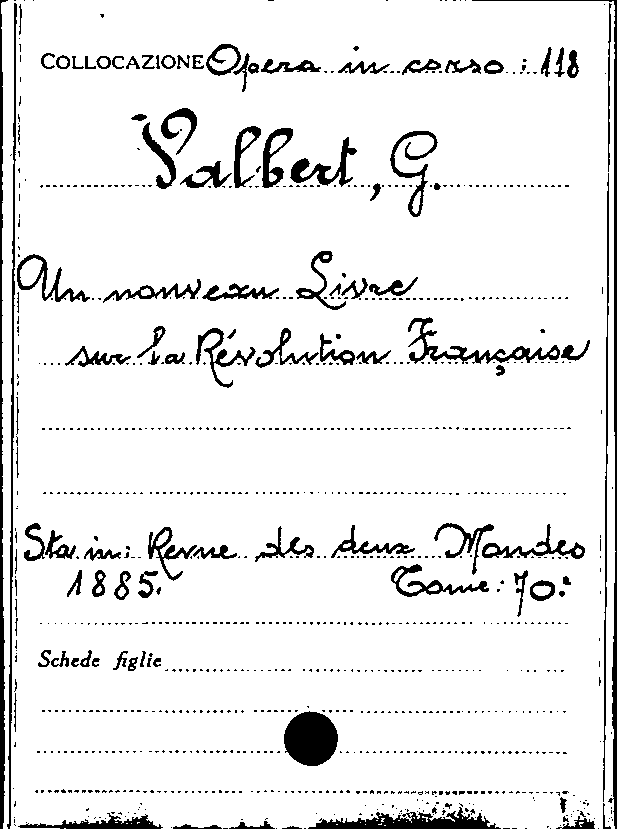 COLLOCAZIONE Opera in corso : 118
Valbert, G.
Un nouveau Livre
sur la Révolution Française
Sta in: Revue des deux Mondes
1885. Tome: 70.
Schede figlie